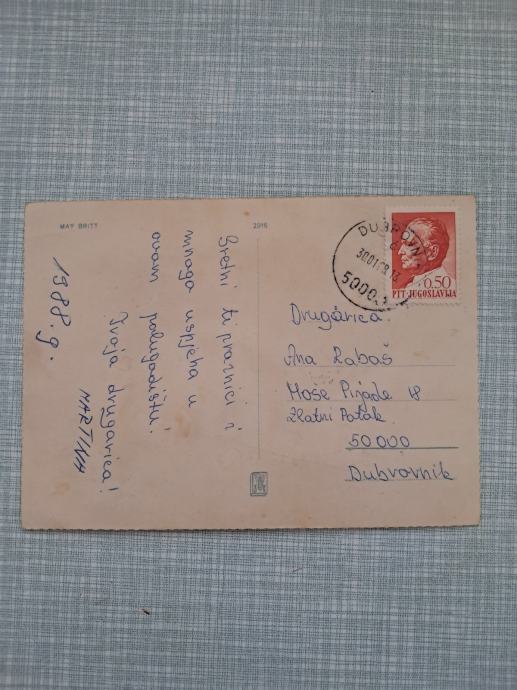 MAY BRITT
2916
1988.g.
Sretni ti praznici i
mnogo uspjeha u
ovom polugodištu!
Tvoja drugarica!
MARTINA
DUBROVNIK
30.01.
5000
0.50
PTT-JUGOSLAVIJA
Drugarica:
Ana Labaš
Moše Pijade 18
Zlatni Potok
50 000
Dubrovnik